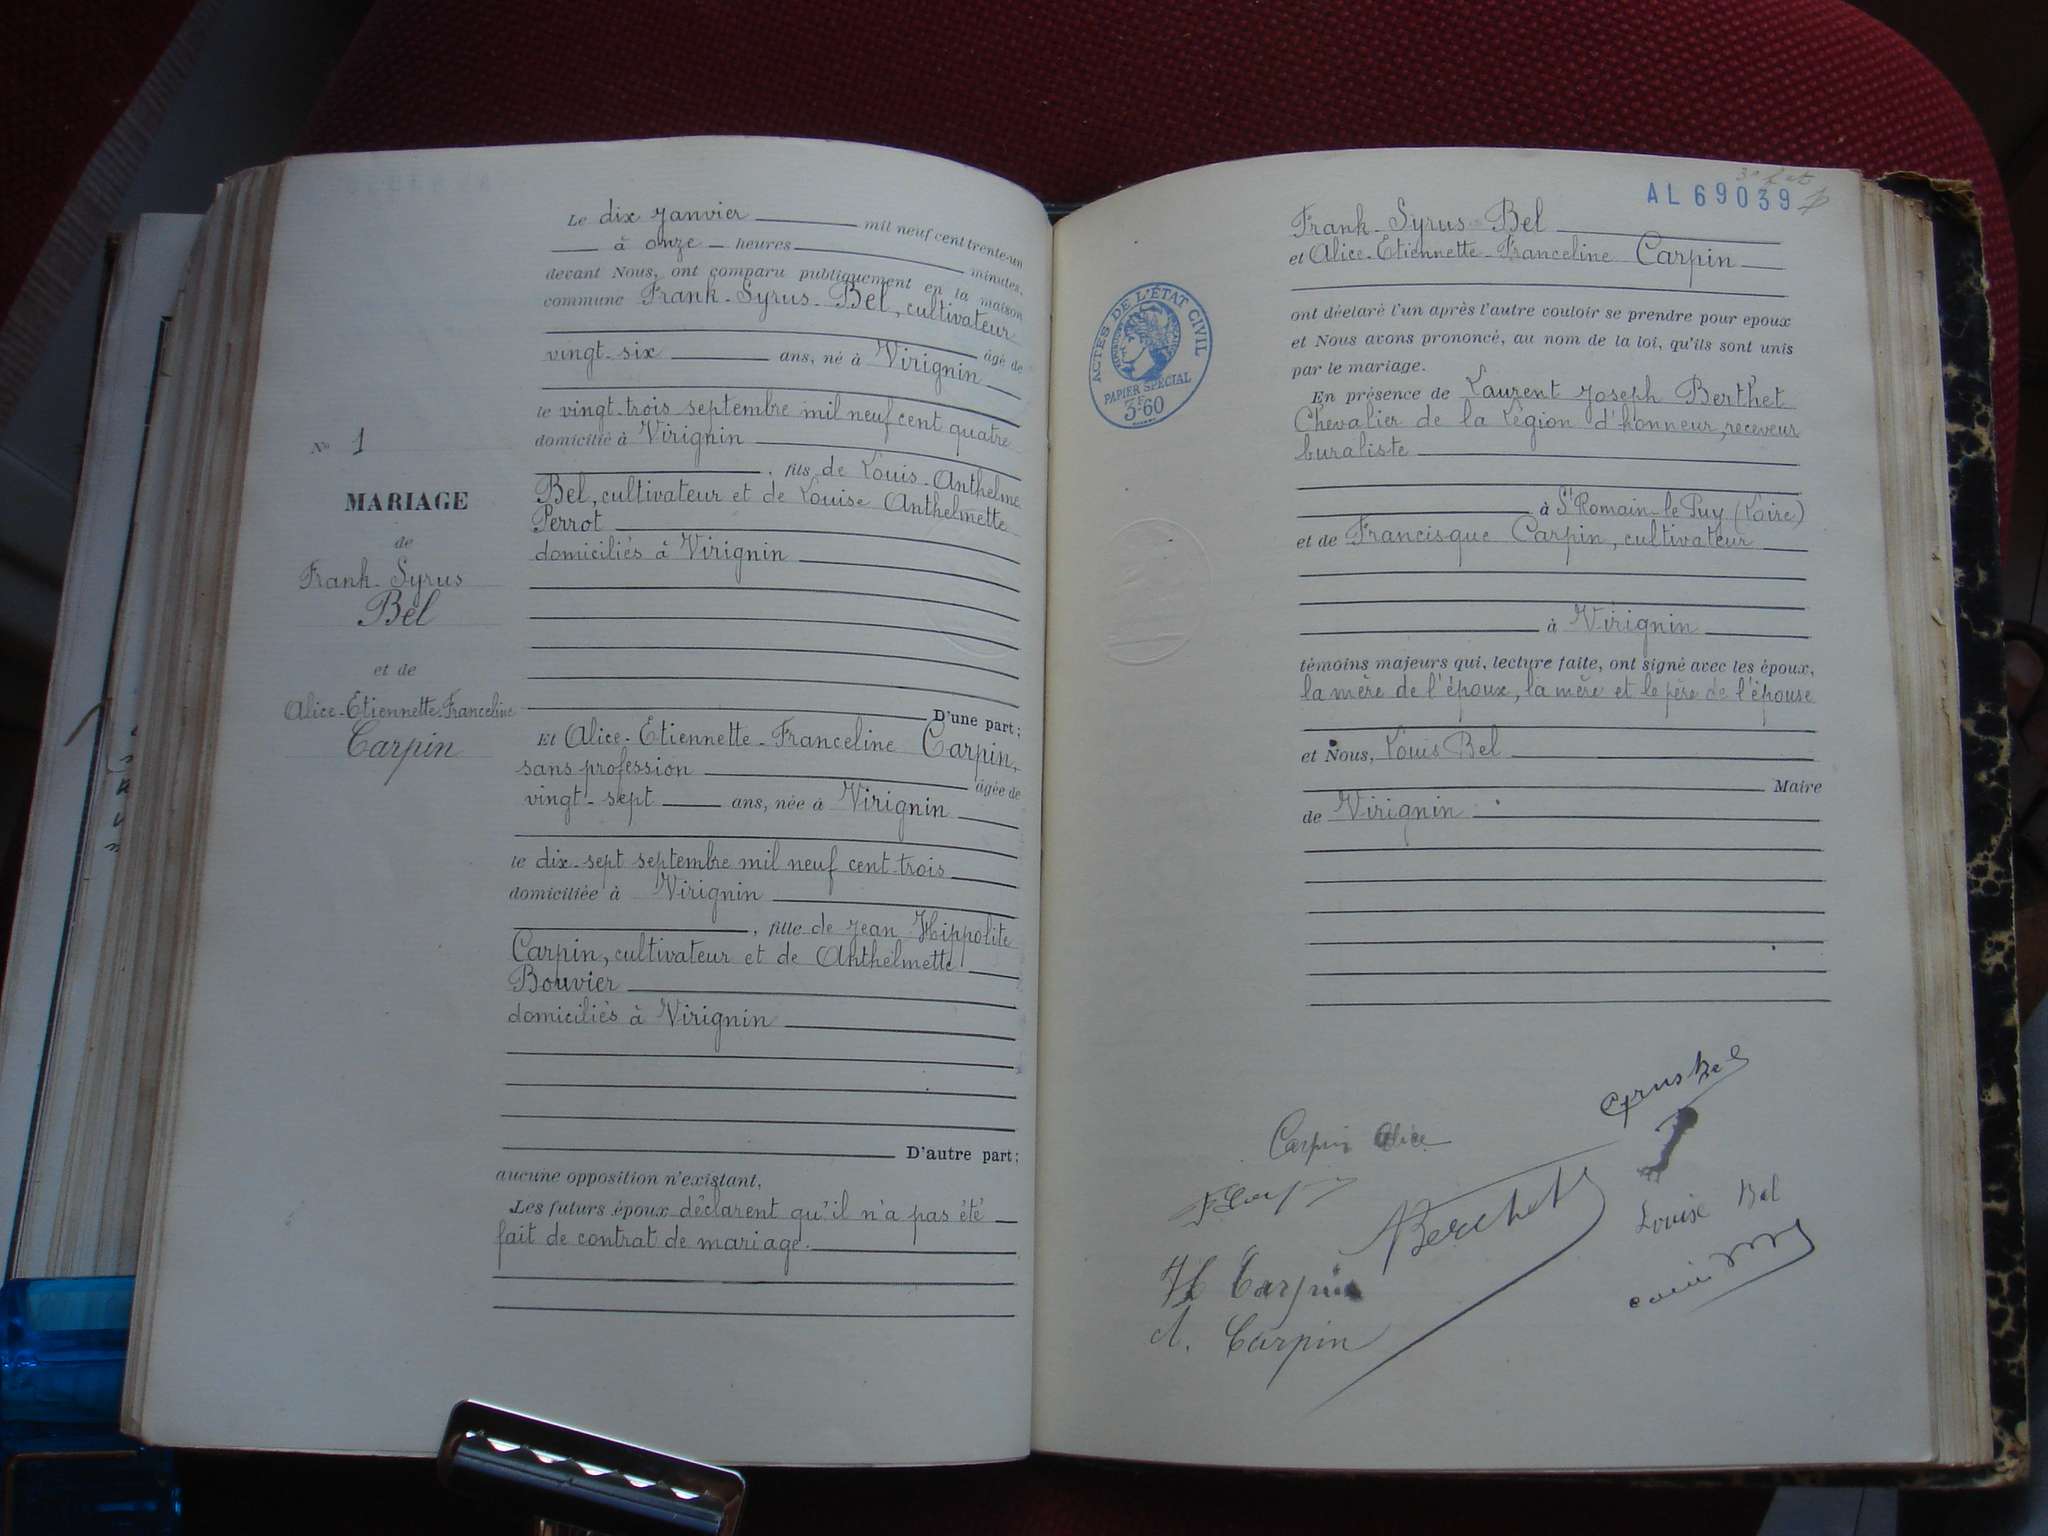 Nº 1
MARIAGE
de
Frank-Syrus
Bel
et de
Alice-Etiennette-Franceline
Carpin
Le dix Janvier mil neuf cent trente-un
à onze heures minutes,
devant Nous, ont comparu publiquement en la maison
commune Frank-Syrus-Bel, cultivateur
âgé de
vingt-six ans, né à Virignin
le vingt-trois septembre mil neuf cent quatre
domicilié à Virignin
, fils de Louis-Anthelme
Bel, cultivateur et de Louise Anthelmette
Perrot
domiciliés à Virignin
D'une part;
Et Alice-Etiennette-Franceline Carpin,
sans profession âgée de
vingt-sept ans, née à Virignin
le dix-sept septembre mil neuf cent-trois
domiciliée à Virignin
, fille de Jean Hippolite
Carpin, cultivateur et de Anthelmette
Bouvier
domiciliés à Virignin
D'autre part;
aucune opposition n'existant.
Les futurs époux déclarent qu'il n'a pas été
fait de contrat de mariage.
AL 69039
ACTES DE L'ÉTAT CIVIL
PAPIER SPÉCIAL
3F60
Frank-Syrus-Bel
et Alice-Etiennette-Franceline Carpin
ont déclaré l'un après l'autre vouloir se prendre pour epoux
et Nous avons prononcé, au nom de la loi, qu'ils sont unis
par le mariage.
En présence de Laurent Joseph Berthet
Chevalier de la Légion d'honneur, receveur
buraliste
à St Romain-le-Puy (Loire)
et de Francisque Carpin, cultivateur
à Virignin
témoins majeurs qui, lecture faite, ont signé avec les époux,
la mère de l'époux, la mère et le père de l'épouse
et Nous, Louis Bel
Maire
de Virignin
Carpin Alice
Berthet
Louise Bel
H Carpin
A. Carpin